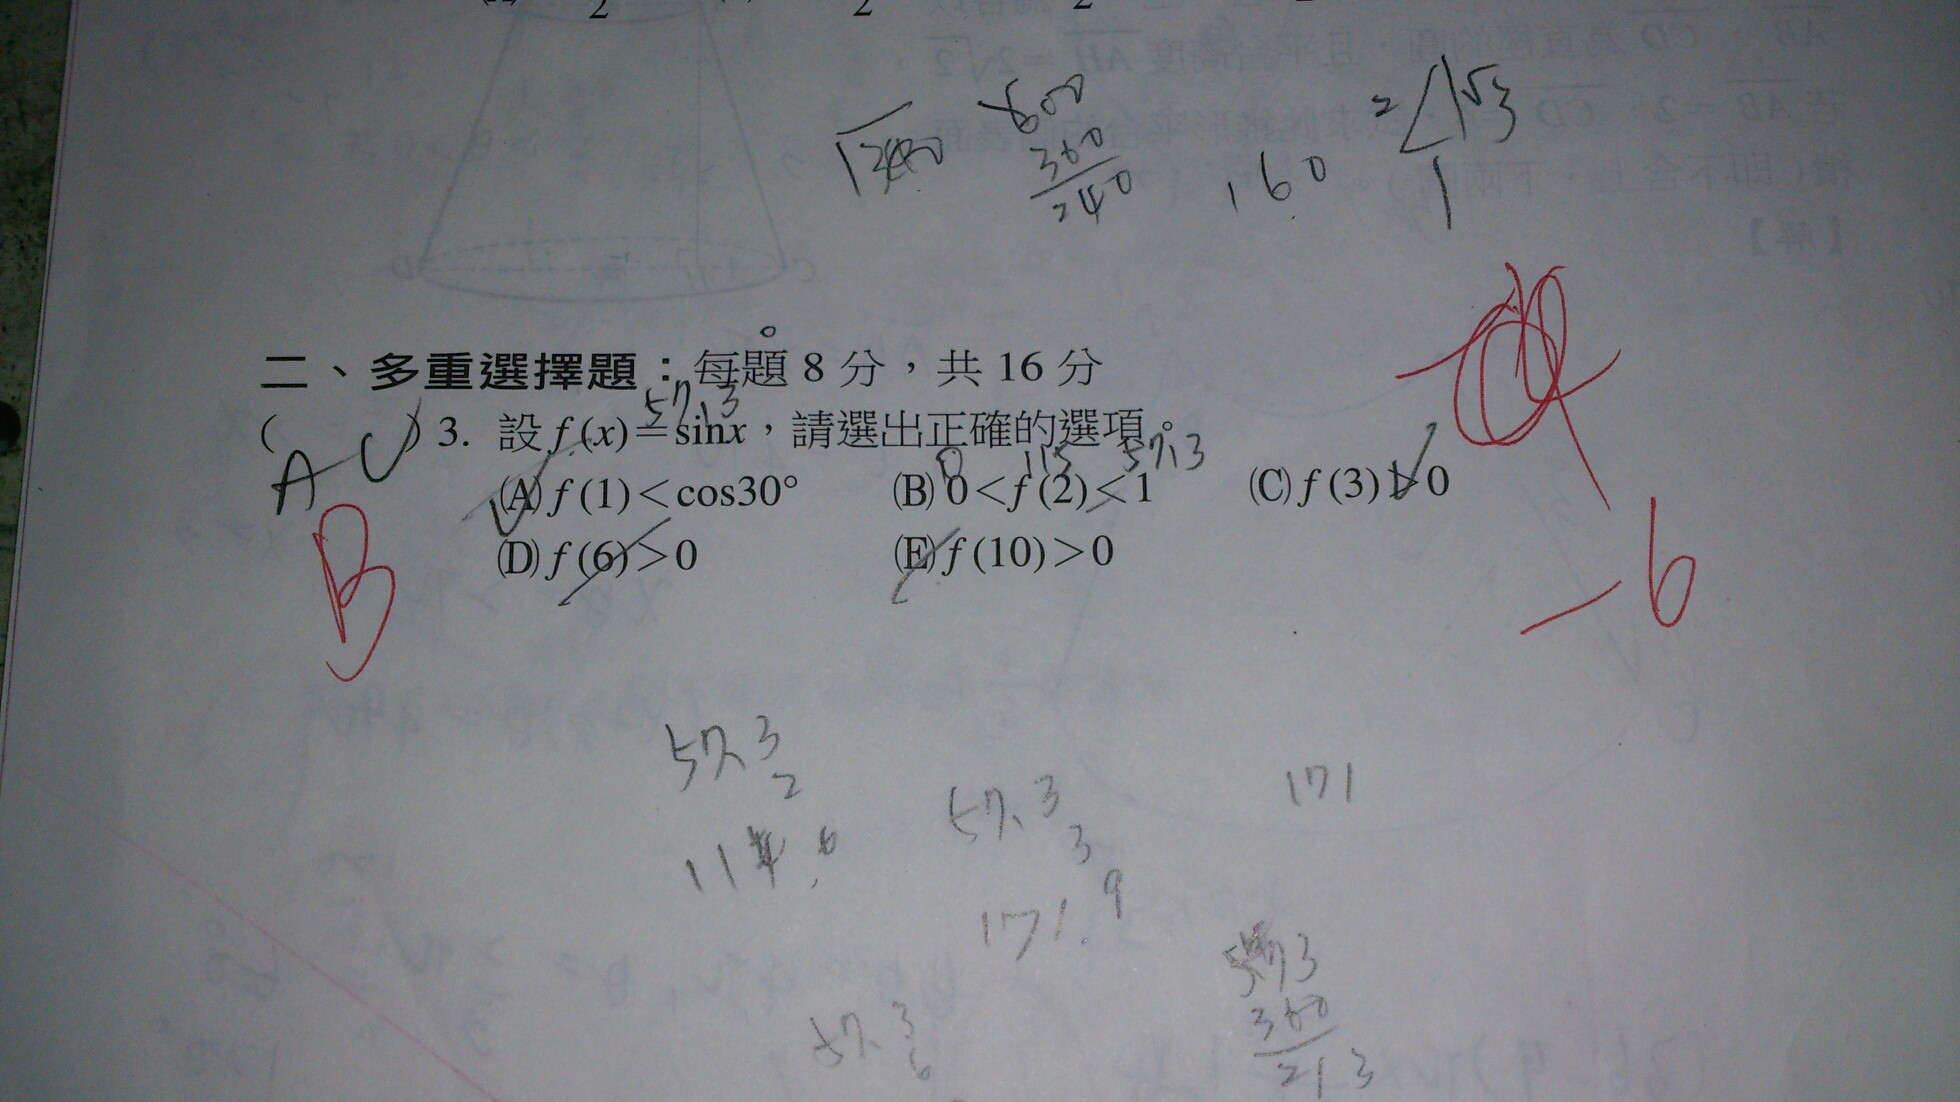 600
360
240
160
=
√3
1
二、多重選擇題：每題 8 分，共 16 分
57.3
( AC ) 3. 設 f (x)＝sinx，請選出正確的選項。
0 115 57.3
(A) f (1)＜cos30° (B) 0＜f (2)＜1 (C) f (3)＞0
B
(D) f (6)＞0 (E) f (10)＞0
－6
57.3
2
114.6
57.3
3
171.9
171
57.3
6
573
360
213